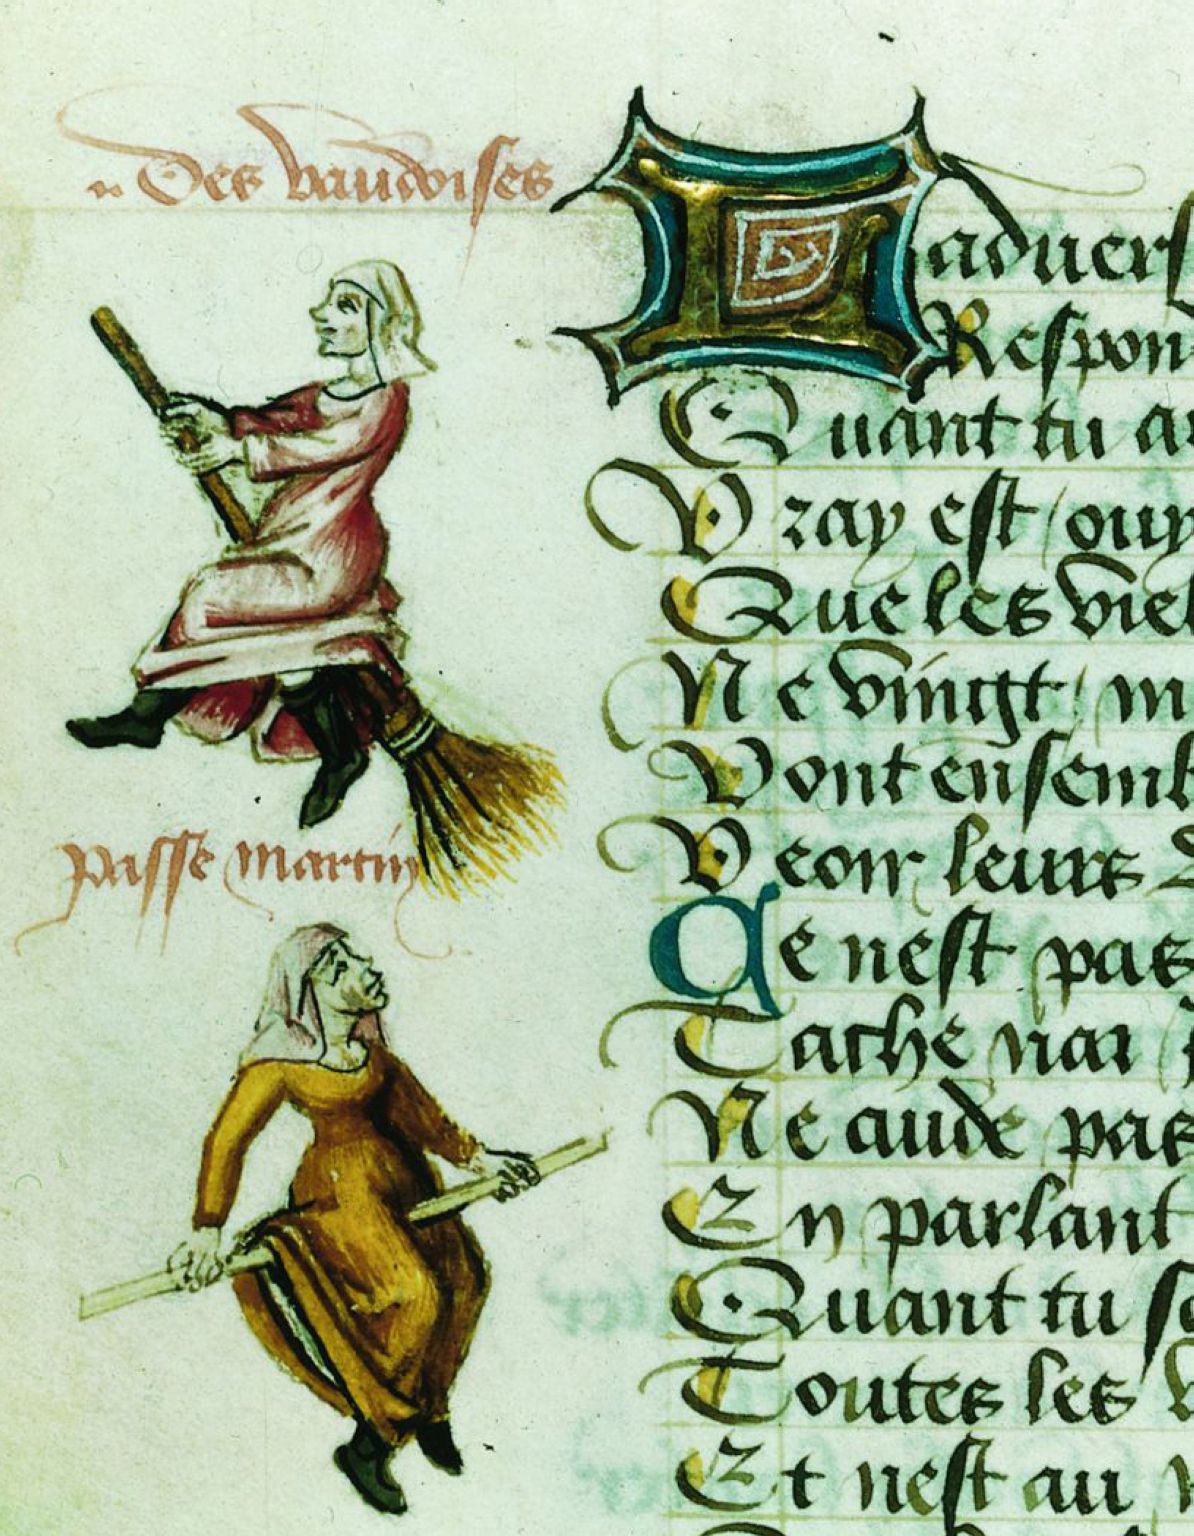 Des vaudoises
passe martin
Ladvers
Respon
Quant tu a
Vray est / ouy
Que les viel
Ne vingt / m
Vont ensemb
Veoir leurs
Ce nest pas
Tache nai
Ne cuide pas
En parlant
Quant tu sc
Toutes les v
Et nest au